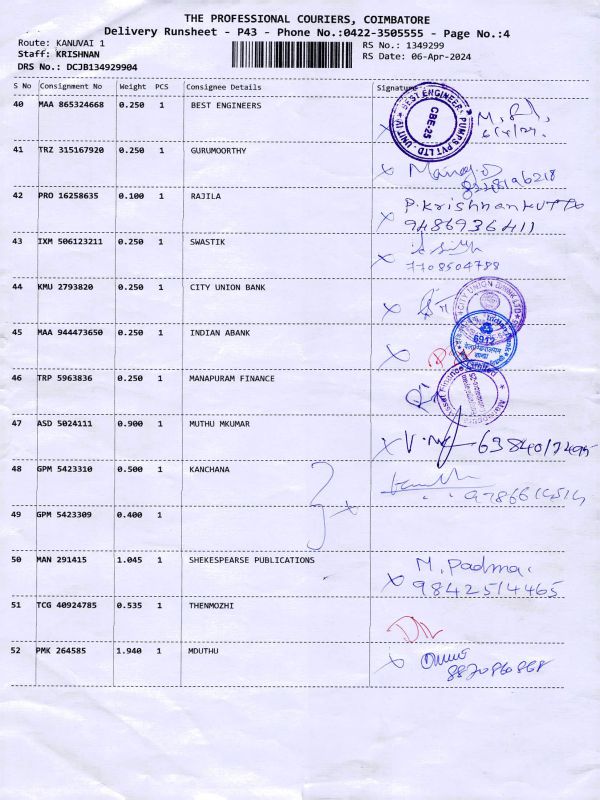 THE PROFESSIONAL COURIERS, COIMBATORE
Delivery Runsheet - P43 - Phone No.:0422-3505555 - Page No.:4
Route: KANUVAI 1
RS No.: 1349299
Staff: KRISHNAN
RS Date: 06-Apr-2024
DRS No.: DCJB134929904
S No Consignment No Weight PCS Consignee Details Signature
40 MAA 865324668 0.250 1 BEST ENGINEERS
BEST ENGINEER PUMPS PVT LTD. UNIT
CBE-25
41 TRZ 315167920 0.250 1 GURUMOORTHY
Manoj.D
42 PRO 16258635 0.100 1 RAJILA
P.Krishnankutto
9486936411
43 IXM 506123211 0.250 1 SWASTIK
7708504788
44 KMU 2793820 0.250 1 CITY UNION BANK
CITY UNION BANK LTD
45 MAA 944473650 0.250 1 INDIAN ABANK
6912
46 TRP 5963836 0.250 1 MANAPURAM FINANCE
47 ASD 5024111 0.900 1 MUTHU MKUMAR
48 GPM 5423310 0.500 1 KANCHANA
49 GPM 5423309 0.400 1
50 MAN 291415 1.045 1 SHEKESPEARSE PUBLICATIONS
M. Padma.
9842514465
51 TCG 40924785 0.535 1 THENMOZHI
52 PMK 264585 1.940 1 MDUTHU
8870860868